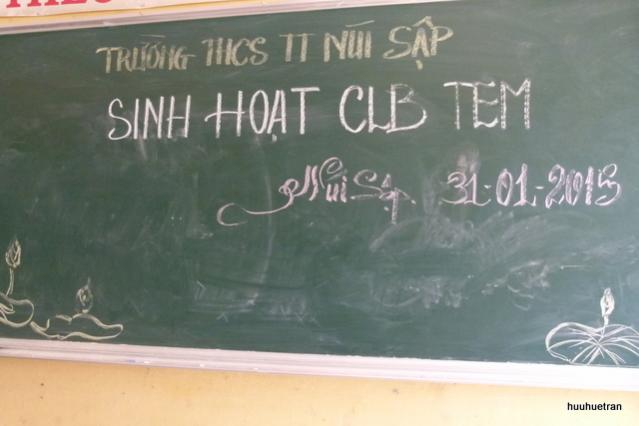 TRƯỜNG THCS TT NÚI SẬP
SINH HOẠT CLB TEM
Núi Sập, 31-01-2015
huuhuetran